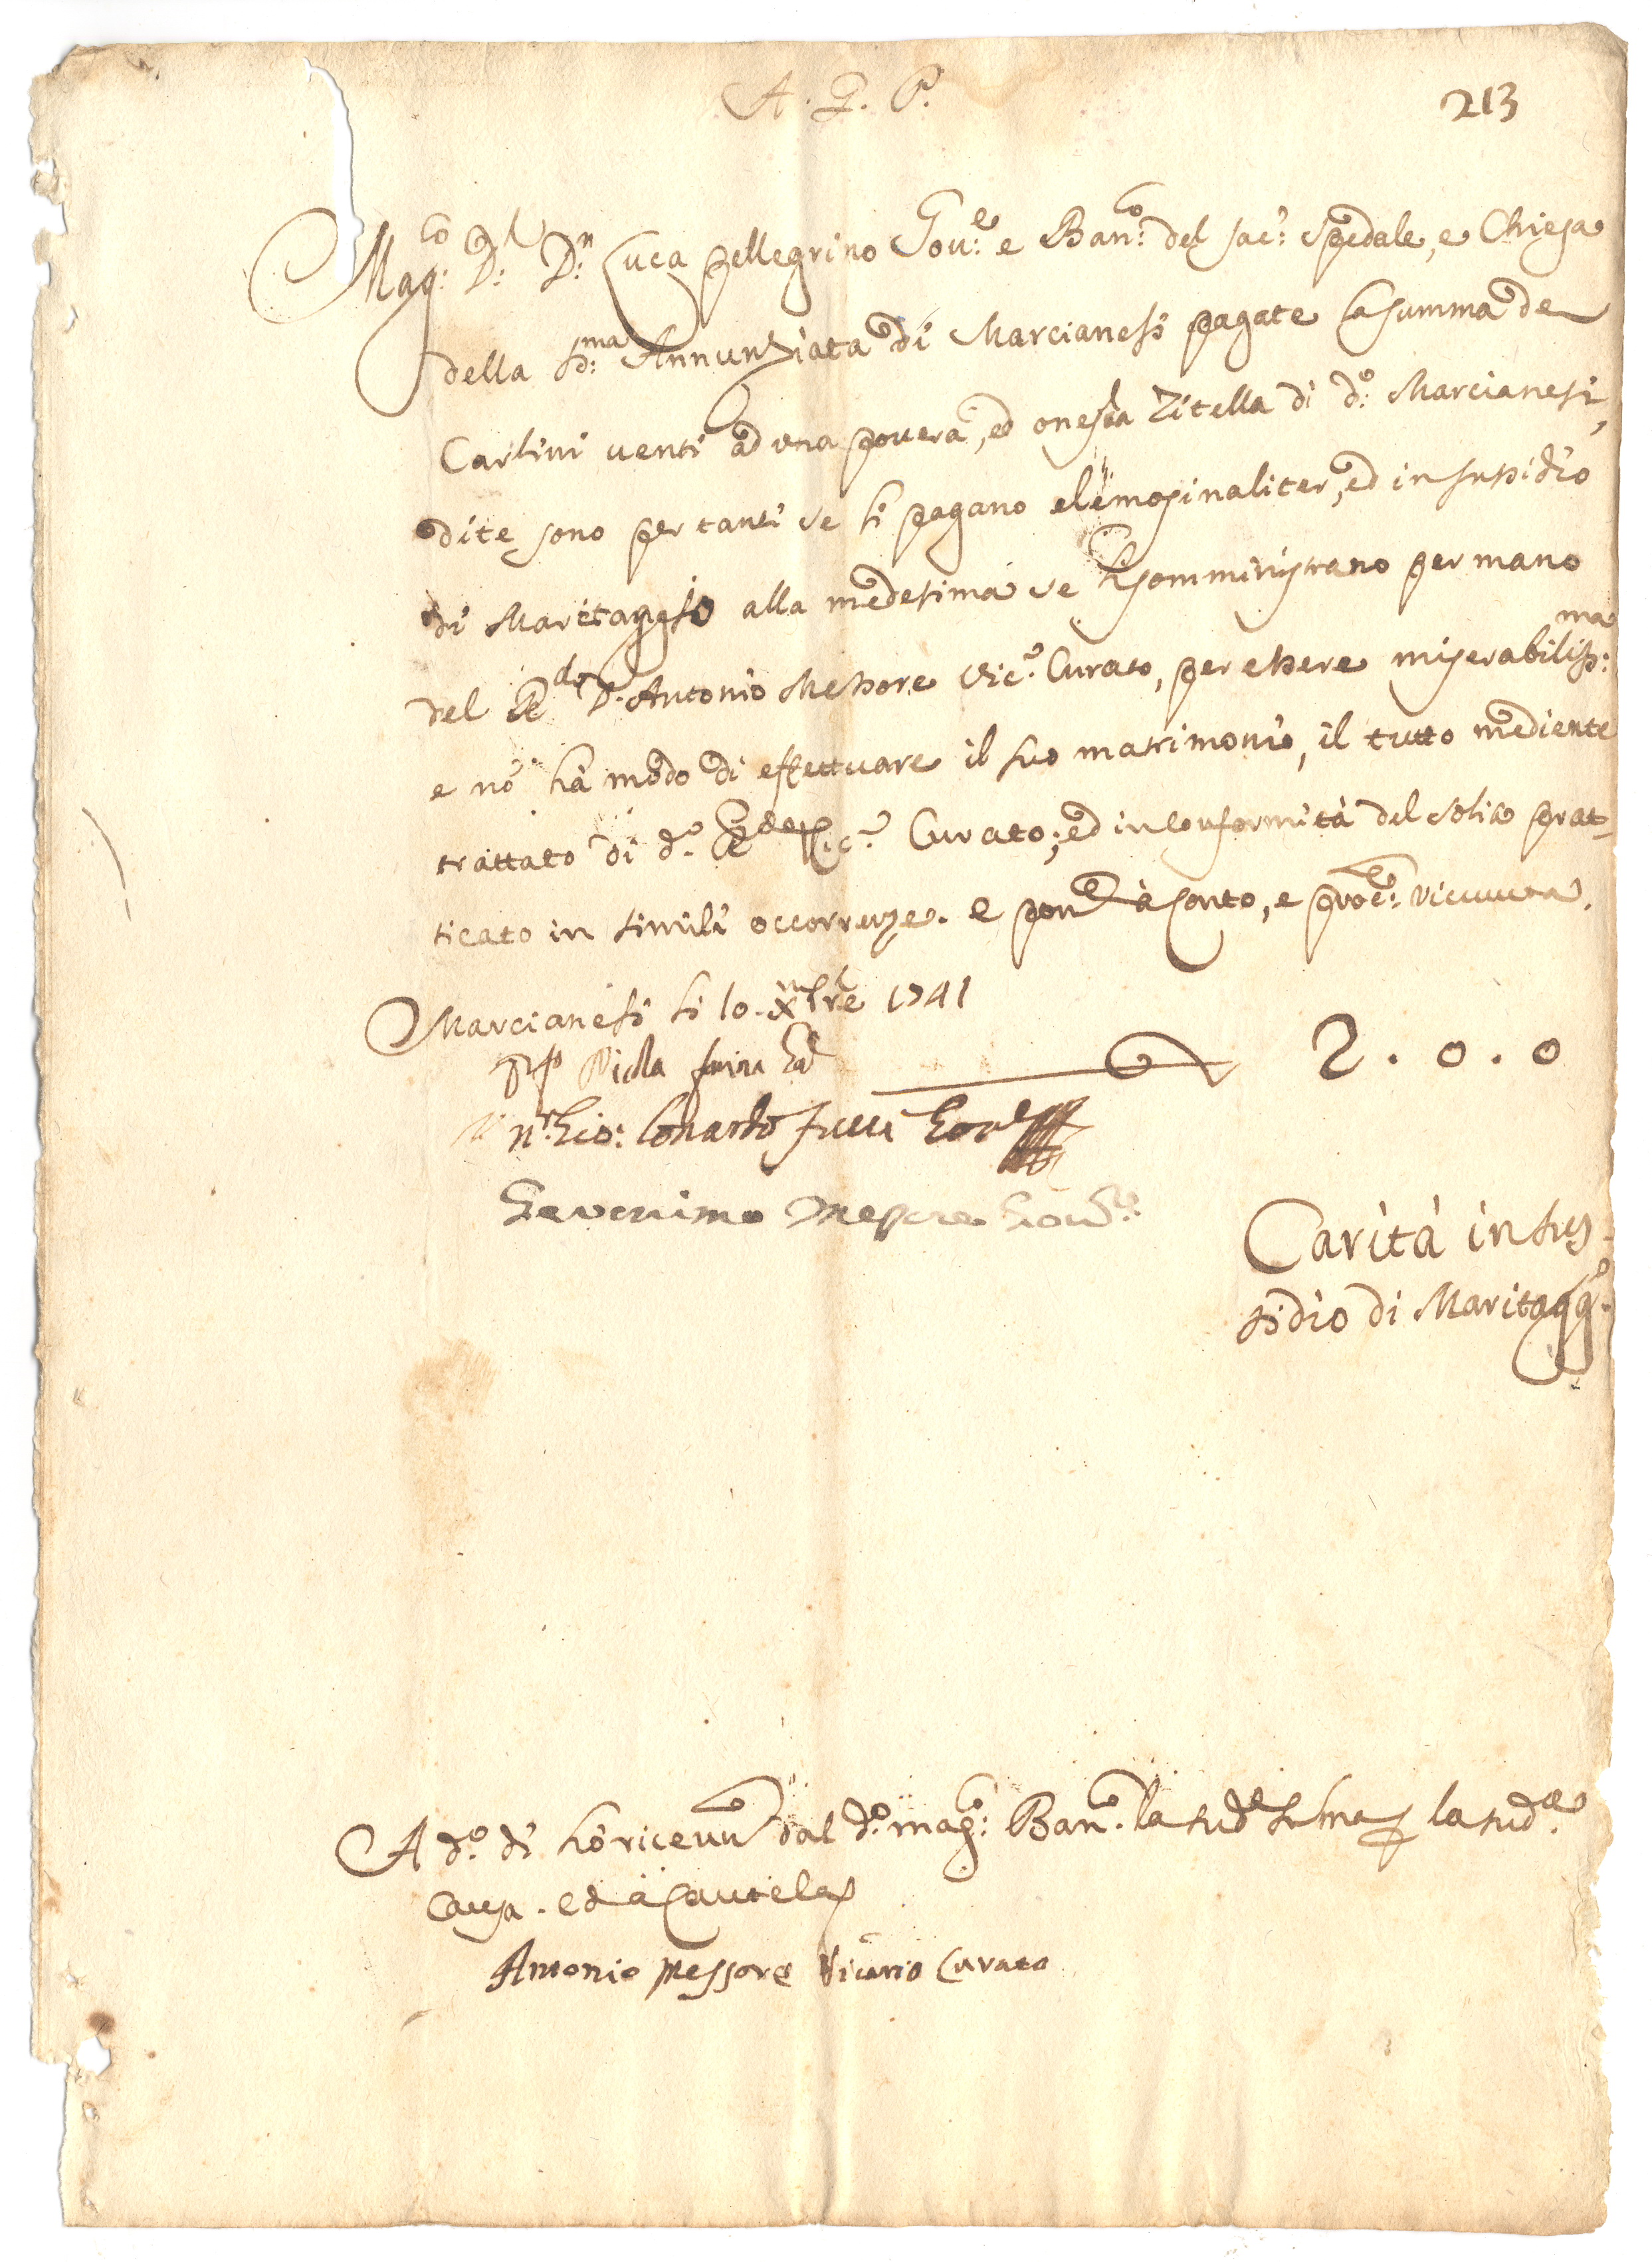 A. G. P.
213
Mag:co D:r D:n Luca Pellegrino Gov:e e Ban:co del sac: Spedale, e Chiesa
della SS:ma Annunziata di Marcianesi pagate la summa de
Carlini venti ad una povera, ed onesta Zitella di d:o Marcianesi,
dite sono per tanti se li pagano elemosinaliter, ed in sussidio
di Maritaggio alla medesima se li somministrano per mano
del R.do D. Antonio Messore Vic.o Curato, per essere miserabiliss:ma
e nõ hà modo di effettuare il suo matrimonio, il tutto mediente
trattato di d.o R.do Vic.o Curato; ed in conformità del solito prat-
ticato in simili occorrenze. e à conto, e
Marcianesi li 10. Xbre 1741
2. 0. 0
Gio: Lonardo
Messore
Carità in sus-
sidio di Maritagg.o
A d.o dì hò ricevuto dal d.o mag:co Ban.co la sud.a suma p la sud.a
causa. ed à cautela
Antonio Messore Vicario Curato